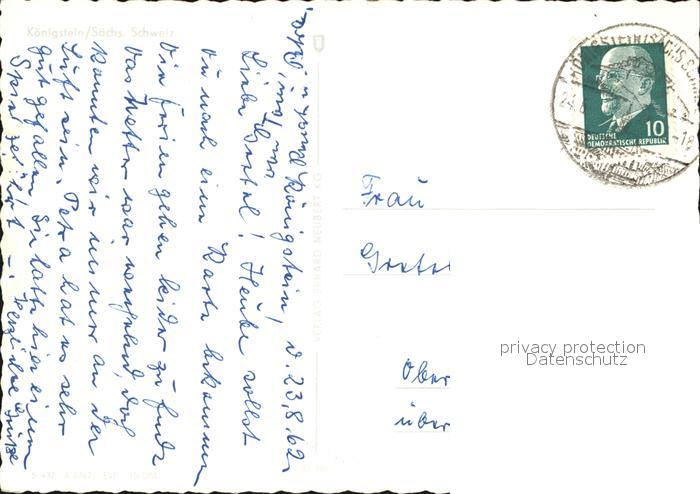 Königstein/Sächs. Schweiz
Königstein, d. 23.8.62.
Liebe Gretel! Heute sollst
Du noch eine Karte bekommen
Die Ferien gehen leider zu Ende
Das Wetter war wangebend, doch
konnten wir immer an der
Luft sein. Petra hat es sehr
gut gefallen. Sie hatte hier einen
Spielgefährt - Herzliche Grüße
VERLAG ERHARD NEUBERT KG
Frau
Gretel
Ober
über
DEUTSCHE
DEMOKRATISCHE REPUBLIK
10
privacy protection
Datenschutz